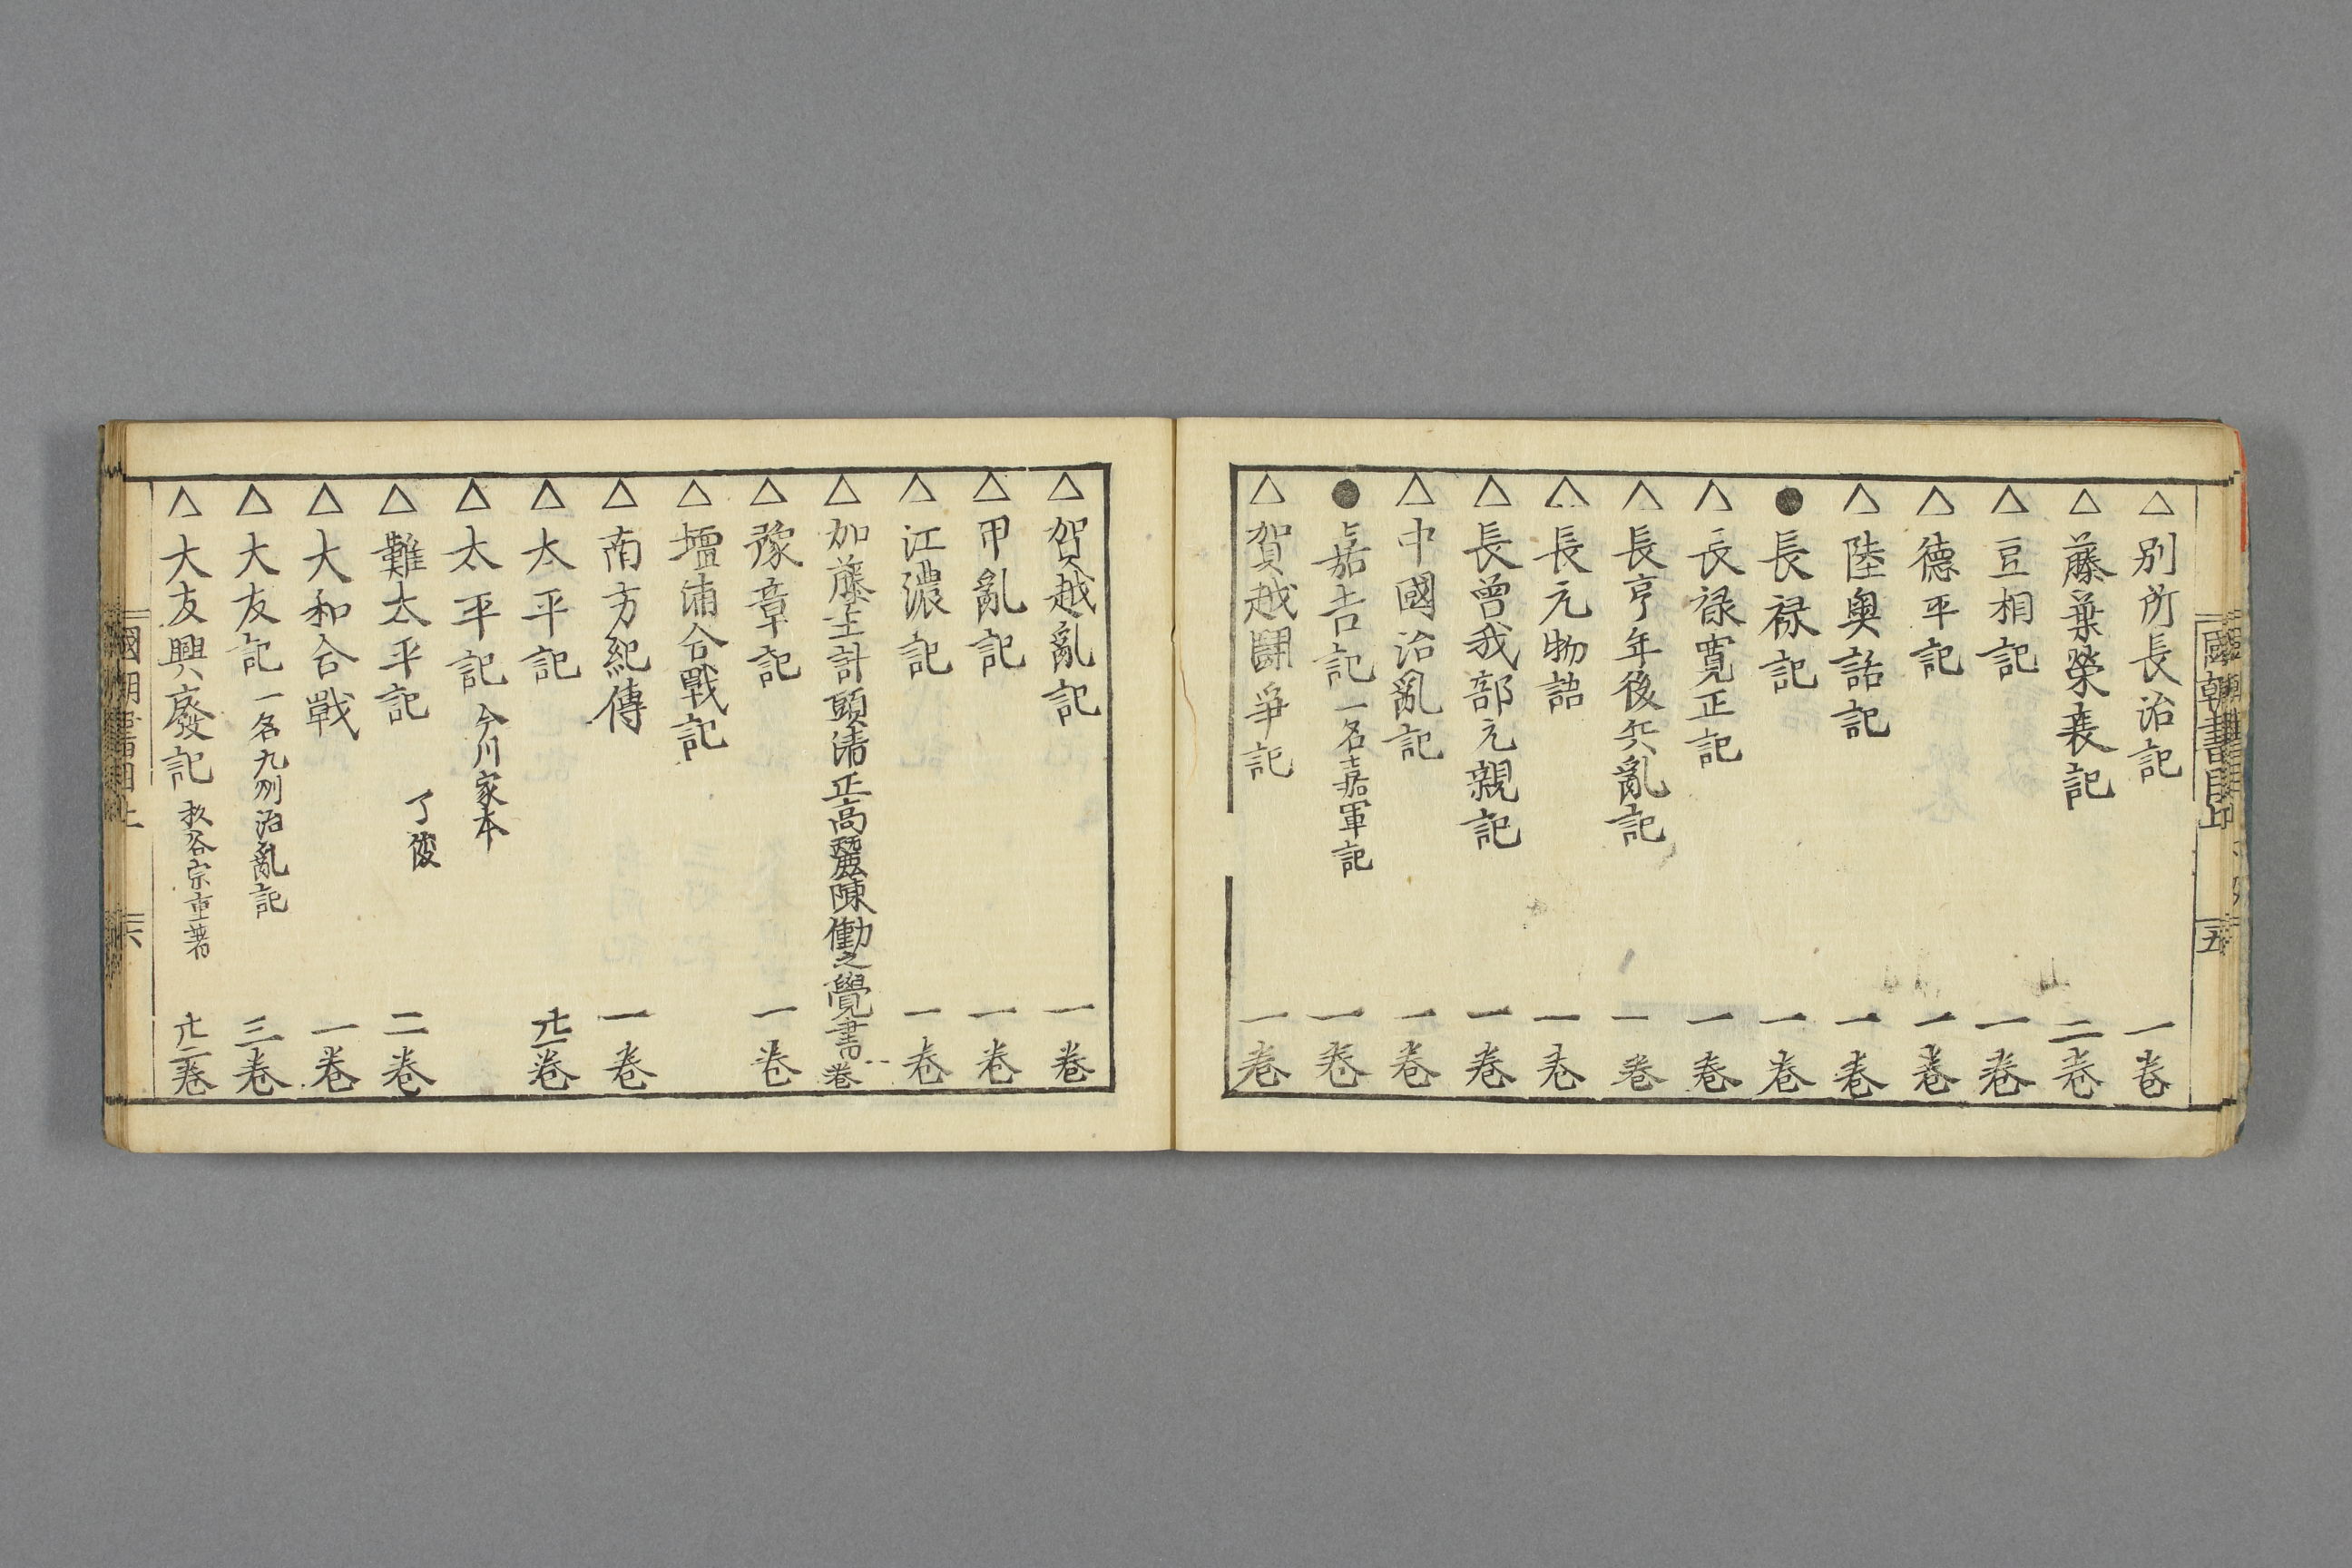 △別所長治記 一卷
△藤葉榮衰記 二卷
△豆相記 一卷
△德平記 一卷
△陸奥話記 一卷
●長禄記 一卷
△長禄寛正記 一卷
△長亨年後兵亂記 一卷
△長元物語 一卷
△長曽我部元親記 一卷
△中國治亂記 一卷
●嘉吉記 一名嘉軍記 一卷
△賀越鬪爭記 一卷
△賀越亂記 一卷
△甲亂記 一卷
△江濃記 一卷
△加藤主計頭清正高麗陳働之覺書 一卷
△豫章記 一卷
△壇浦合戰記
△南方紀傳 一卷
△太平記 卄一卷
△太平記 今川家本
△難太平記 了俊 二卷
△大和合戰 一卷
△大友記 一名九州治亂記 三卷
△大友興廢記 杦谷宗重著 卄二卷
國朝書目上
五
六